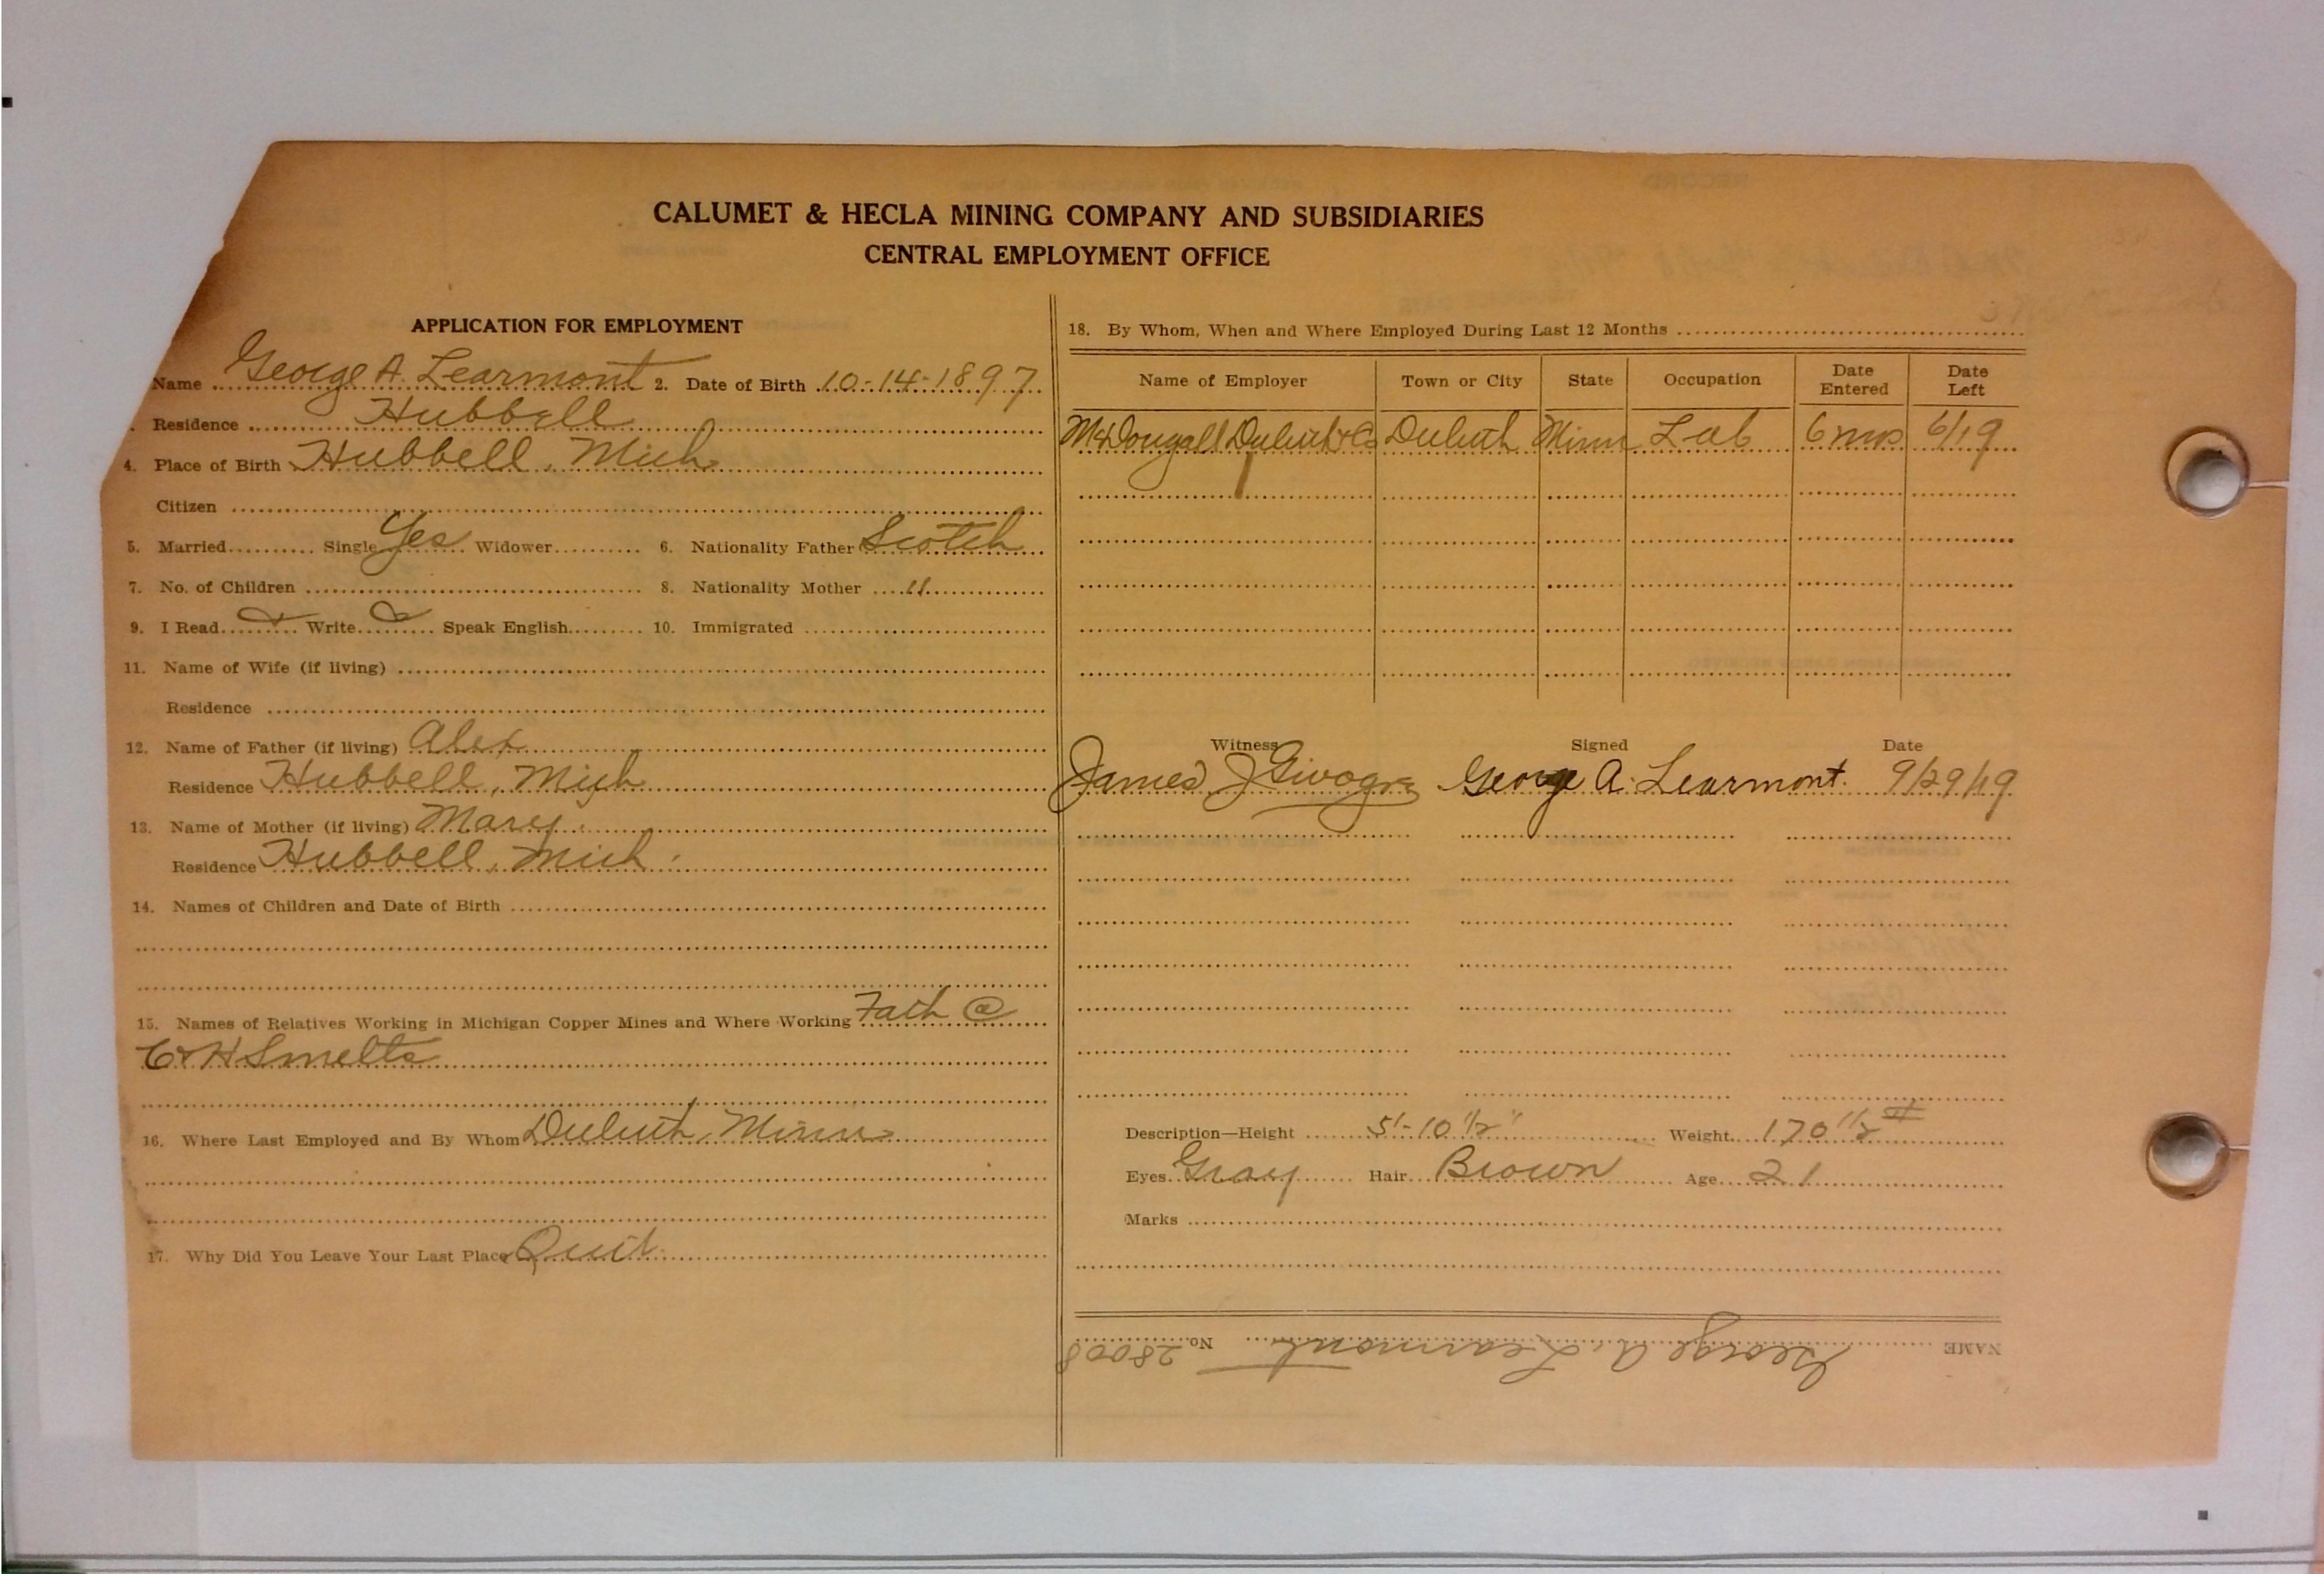 CALUMET & HECLA MINING COMPANY AND SUBSIDIARIES
CENTRAL EMPLOYMENT OFFICE
APPLICATION FOR EMPLOYMENT
Name George A. Learmont 2. Date of Birth 10-14-1897
Residence Hubbell
4. Place of Birth Hubbell, Mich
Citizen
5. Married Single Yes Widower 6. Nationality Father Scotch
7. No. of Children 8. Nationality Mother "
9. I Read Write Speak English 10. Immigrated
11. Name of Wife (if living)
Residence
12. Name of Father (if living) Alex
Residence Hubbell, Mich
13. Name of Mother (if living) Mary
Residence Hubbell, Mich.
14. Names of Children and Date of Birth
15. Names of Relatives Working in Michigan Copper Mines and Where Working Fath @
C & H Smelts
16. Where Last Employed and By Whom Duluth, Minn
17. Why Did You Leave Your Last Place Quit
18. By Whom, When and Where Employed During Last 12 Months
Name of Employer Town or City State Occupation Date Entered Date Left
McDougall Duluth Co Duluth Minn Lab 6 mos 6/19
Witness Signed Date
James J George A. Learmont. 9/29/19
Description—Height 5'-10 1/2" Weight 170 1/2 #
Eyes Gray Hair Brown Age 21
Marks
NAME George A. Learmont No. 28008